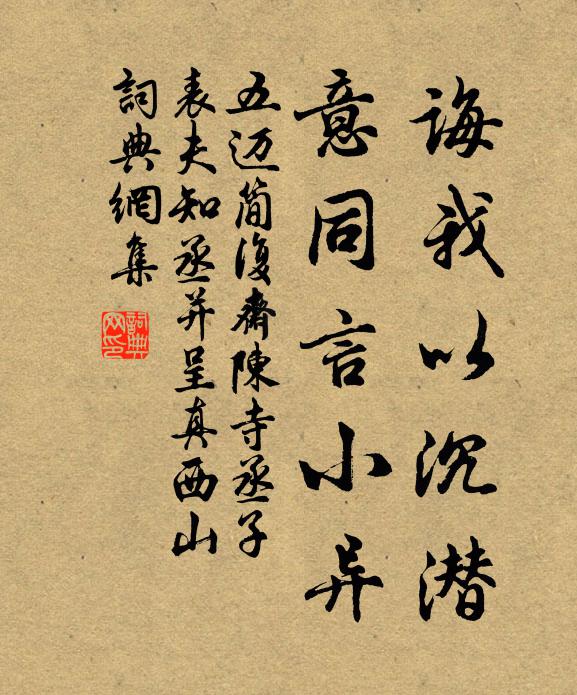 诲我以沉潜
意同言小异
五迈简复斋陳寺丞子
表夫知丞并呈真西山
詞典網集
詞典网印